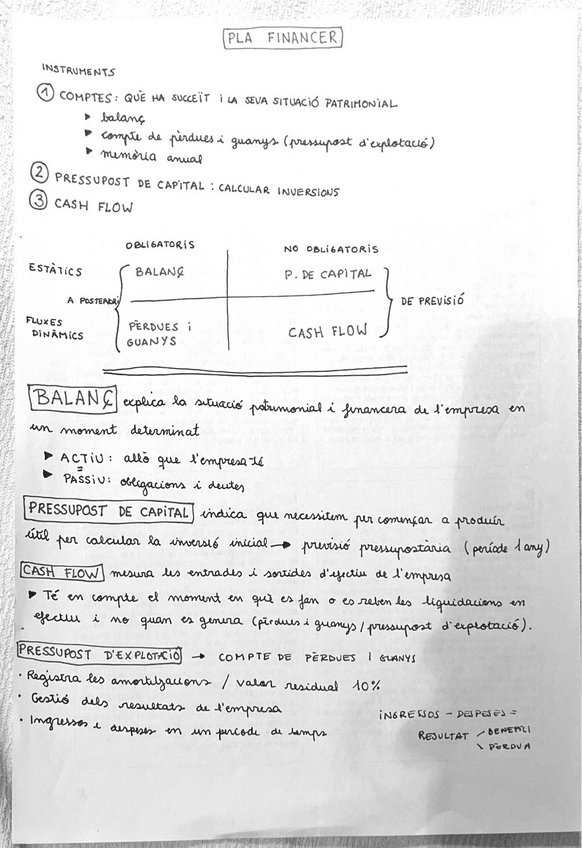 PLA FINANCER
INSTRUMENTS
① COMPTES: QUÈ HA SUCCEÏT I LA SEVA SITUACIÓ PATRIMONIAL
▶ balanç
▶ compte de pèrdues i guanys (pressupost d'explotació)
▶ memòria anual
② PRESSUPOST DE CAPITAL: CALCULAR INVERSIONS
③ CASH FLOW
OBLIGATORIS NO OBLIGATORIS
ESTÀTICS BALANÇ P. DE CAPITAL
A POSTERIORI DE PREVISIÓ
FLUXES DINÀMICS PÈRDUES i GUANYS CASH FLOW
BALANÇ explica la situació patrimonial i financera de l'empresa en
un moment determinat
▶ ACTIU: allò que l'empresa té
=
▶ PASSIU: obligacions i deutes
PRESSUPOST DE CAPITAL indica que necessitem per començar a produir
útil per calcular la inversió inicial → previsió pressupostària (període 1 any)
CASH FLOW mesura les entrades i sortides d'efectiu de l'empresa
▶ Té en compte el moment en què es fan o es reben les liquidacions en
efectiu i no quan es genera (pèrdues i guanys/pressupost d'explotació).
PRESSUPOST D'EXPLOTACIÓ → COMPTE DE PÈRDUES I GUANYS
· Registra les amortitzacions / valor residual 10%
· Gestió dels resultats de l'empresa
· Ingressos i despeses en un període de temps
INGRESSOS - DESPESES =
RESULTAT BENEFICI
PÈRDUA